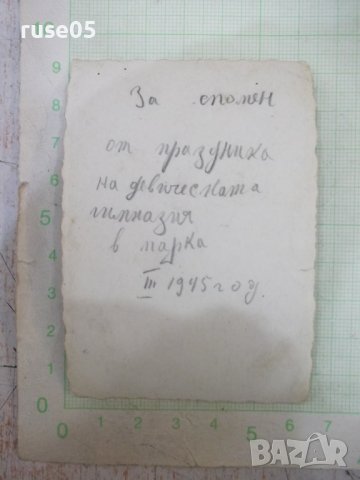 ruse05
За спомен
от празника
на девическата
гимназия
в парка
III 1945 год.
10
9
8
7
6
5
4
3
2
1
0
0 1 2 3 4 5 6 7
BAZAR